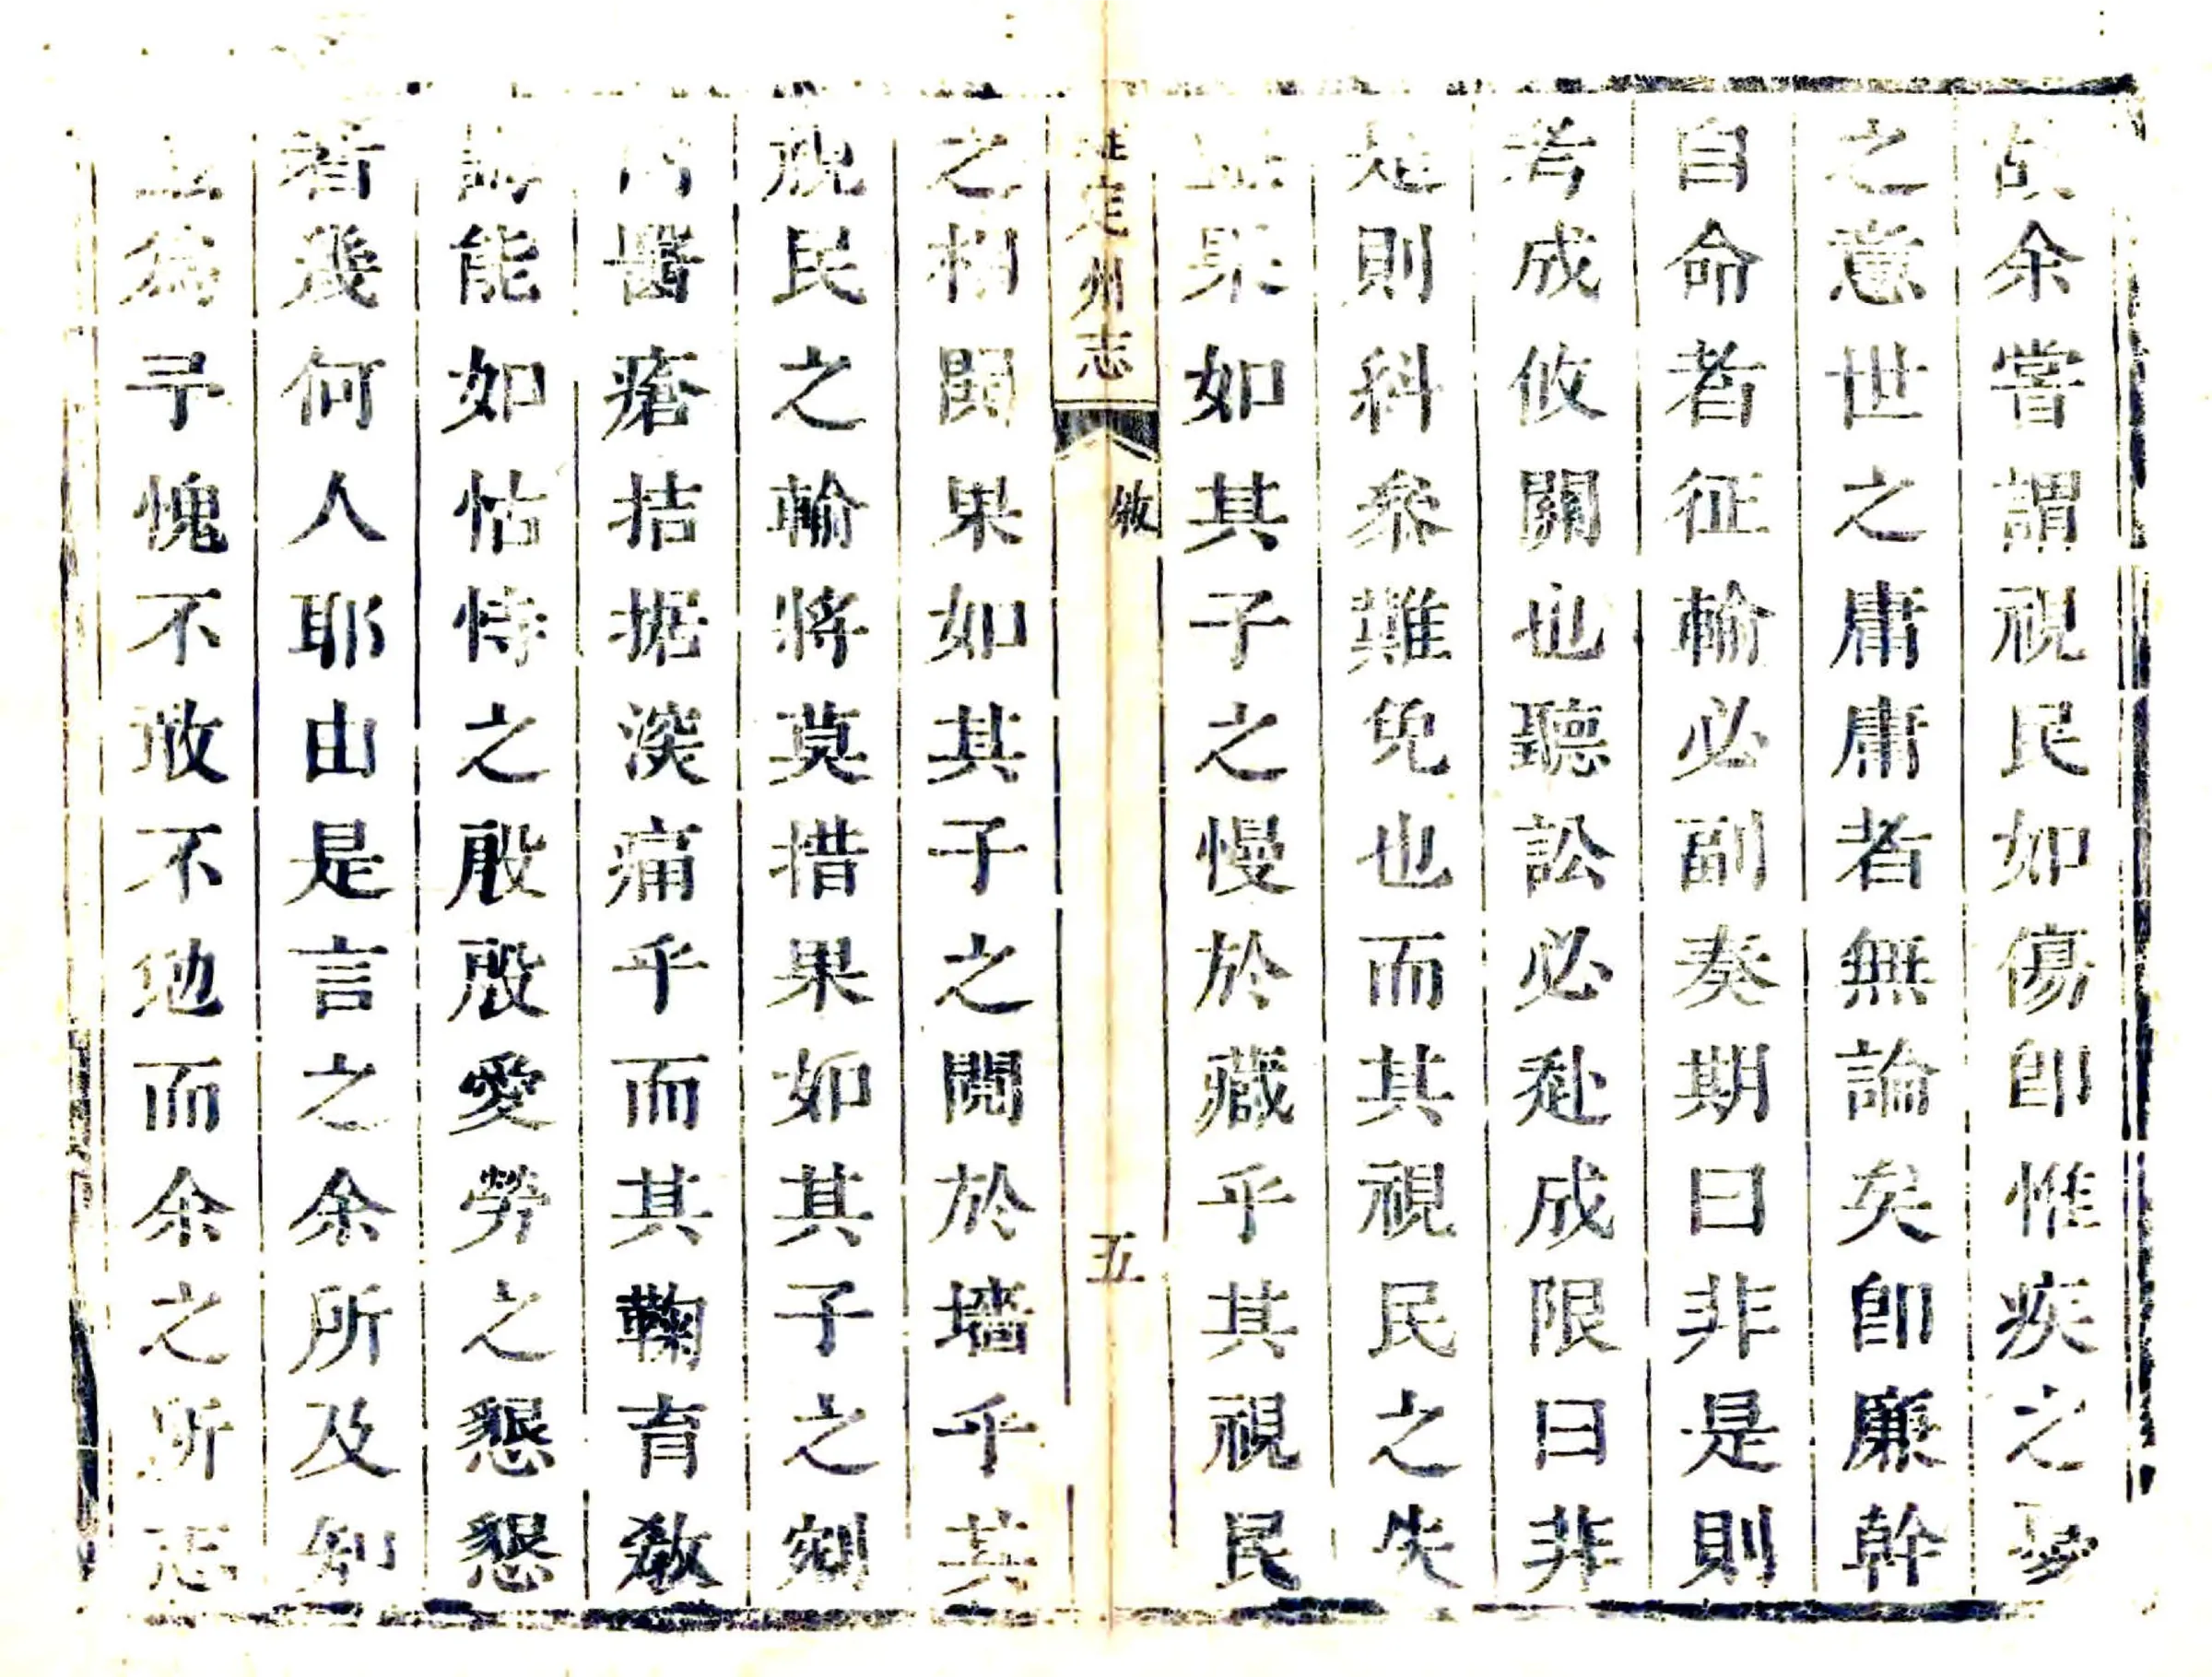 故余嘗謂視民如傷即惟疾之憂
之意世之庸庸者無論矣即廉幹
自命者征輸必副奏期曰非是則
考成攸關也聽訟必赴成限曰非
是則科參難免也而其視民之失
果如其子之慢於藏乎其視民
羅定州志 敘 五
之相鬭果如其子之鬩於墻乎其
視民之輸將莫措果如其子之剜
肉醫瘡拮据深痛乎而其鞠育教
誨能如怙恃之殷殷愛勞之懇懇
者幾何人耶由是言之余所及知
為予愧不敢不勉而余之所志